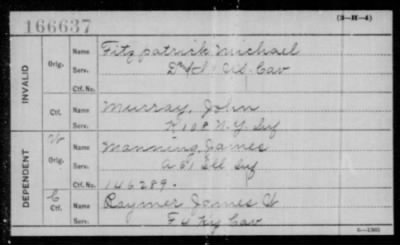 166637
(3—H—4)
INVALID
Orig.
Name Fitzpatrick Michael
Serv. Ill Cav
Ctf. No.
Ctf.
Name Murray, John
Serv. K 108 N.Y. Inf
DEPENDENT
W
Orig.
Name Manning, James
Serv. A 51 Ill Inf
Ctf. No. 146289.
C
Ctf.
Name Raymer James H
Serv. F 4 Ky Cav